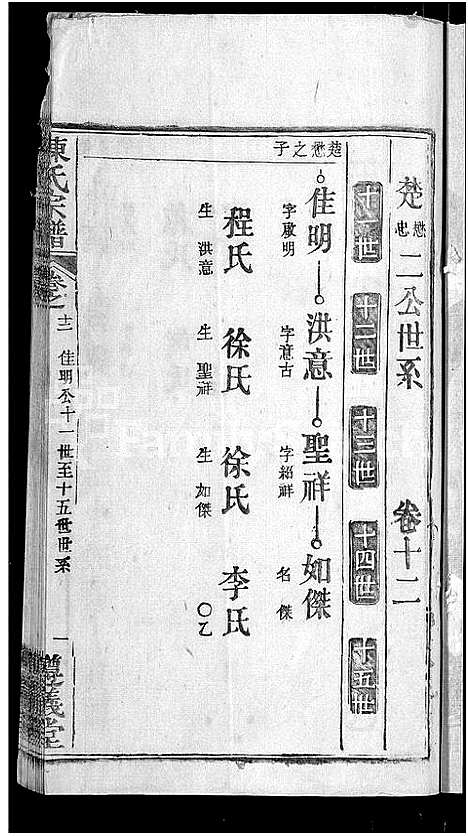 楚懋忠二公世系 卷十二
十一世 十二世 十三世 十四世 十五世
楚懋之子
佳明 洪意 聖祥 如傑
字啟明 字意古 字紹祥 名傑
程氏 徐氏 徐氏 李氏
生洪意 生聖祥 生如傑 〇乙
陳氏宗譜 卷之十二 佳明公十一世至十五世世系 一
義堂